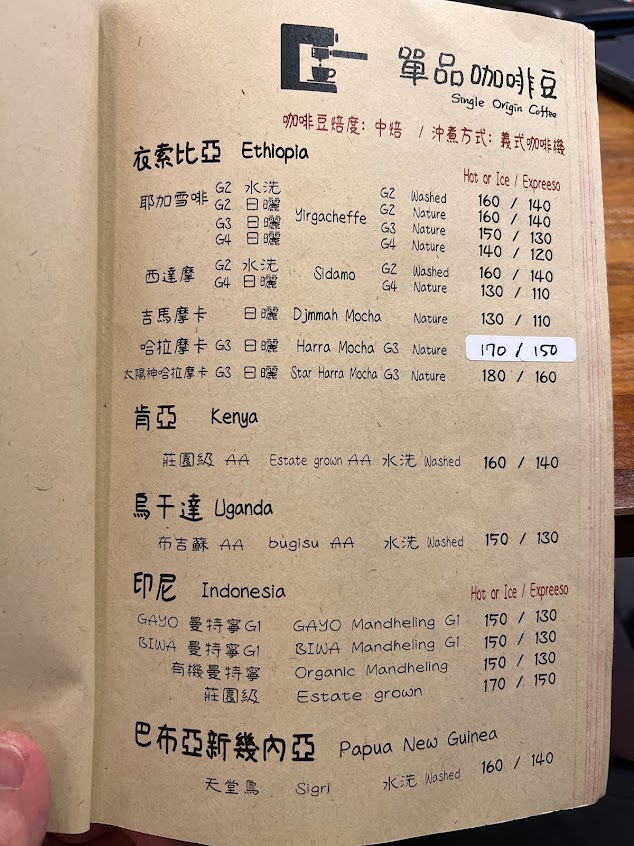 單品咖啡豆
Single Origin Coffee
咖啡豆焙度: 中焙 / 沖煮方式: 義式咖啡機
衣索比亞 Ethiopia
Hot or Ice / Expreeso
耶加雪啡 G2 水洗 Yirgacheffe G2 Washed 160 / 140
G2 日曬 G2 Nature 160 / 140
G3 日曬 G3 Nature 150 / 130
G4 日曬 G4 Nature 140 / 120
西達摩 G2 水洗 Sidamo G2 Washed 160 / 140
G4 日曬 G4 Nature 130 / 110
吉馬摩卡 日曬 Djmmah Mocha Nature 130 / 110
哈拉摩卡 G3 日曬 Harra Mocha G3 Nature 170 / 150
太陽神哈拉摩卡 G3 日曬 Star Harra Mocha G3 Nature 180 / 160
肯亞 Kenya
莊園級 AA Estate grown AA 水洗 Washed 160 / 140
烏干達 Uganda
布吉蘇 AA bugisu AA 水洗 Washed 150 / 130
印尼 Indonesia
Hot or Ice / Expreeso
GAYO 曼特寧G1 GAYO Mandheling G1 150 / 130
BIWA 曼特寧G1 BIWA Mandheling G1 150 / 130
有機曼特寧 Organic Mandheling 150 / 130
莊園級 Estate grown 170 / 150
巴布亞新幾內亞 Papua New Guinea
天堂鳥 Sigri 水洗 Washed 160 / 140